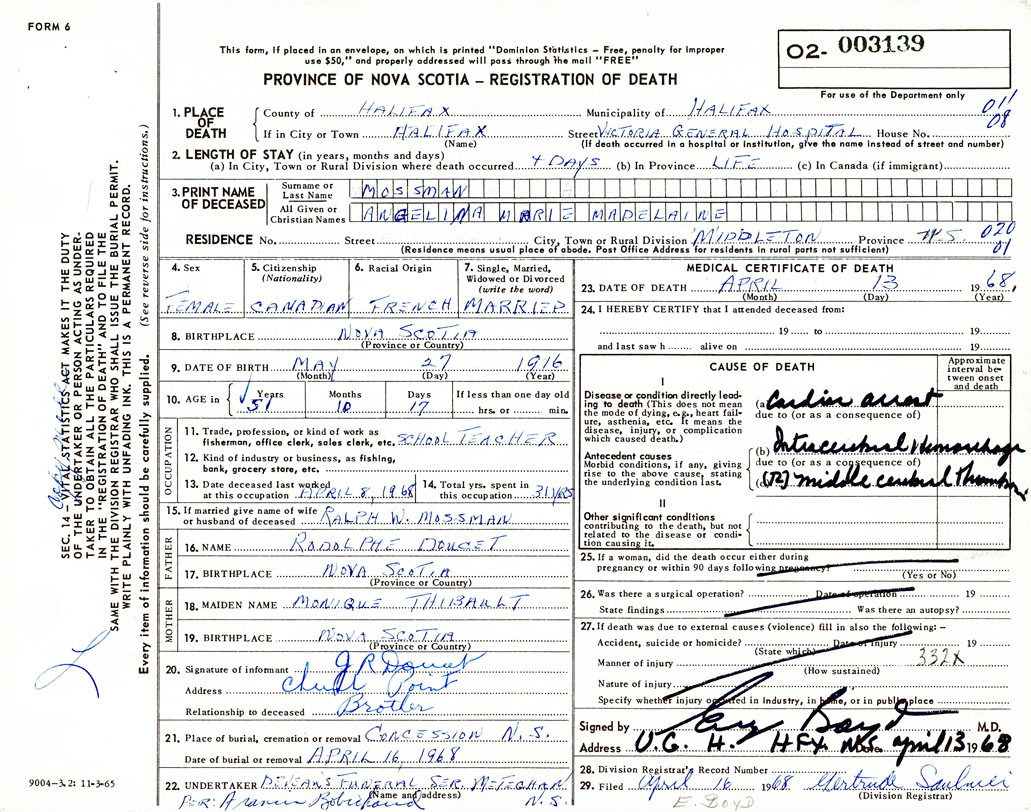 FORM 6
This form, if placed in an envelope, on which is printed "Dominion Statistics – Free, penalty for improper
use $50," and properly addressed will pass through the mail "FREE"
O2- 003139
For use of the Department only
PROVINCE OF NOVA SCOTIA – REGISTRATION OF DEATH
1. PLACE OF DEATH
County of HALIFAX Municipality of HALIFAX 011
If in City or Town HALIFAX Street VICTORIA GENERAL HOSPITAL House No. 08
(Name) (If death occurred in a hospital or institution, give the name instead of street and number)
2. LENGTH OF STAY (in years, months and days)
(a) In City, Town or Rural Division where death occurred 4 DAYS (b) In Province LIFE (c) In Canada (if immigrant)
3. PRINT NAME OF DECEASED
Surname or Last Name MOSSMAN
All Given or Christian Names ANGELINA MARIE MADELAINE
RESIDENCE No. Street City, Town or Rural Division MIDDLETON Province N.S. 020
(Residence means usual place of abode. Post Office Address for residents in rural parts not sufficient) 01
4. Sex 5. Citizenship (Nationality) 6. Racial Origin 7. Single, Married, Widowed or Divorced (write the word)
FEMALE CANADIAN FRENCH MARRIED
8. BIRTHPLACE NOVA SCOTIA
(Province or Country)
9. DATE OF BIRTH MAY 27 1916
(Month) (Day) (Year)
10. AGE in Years Months Days If less than one day old
51 10 17 hrs. or min.
OCCUPATION
11. Trade, profession, or kind of work as
fisherman, office clerk, sales clerk, etc. SCHOOL TEACHER
12. Kind of industry or business, as fishing,
bank, grocery store, etc.
13. Date deceased last worked
at this occupation APRIL 8, 1968
14. Total yrs. spent in
this occupation 31 YRS
15. If married give name of wife
or husband of deceased RALPH W. MOSSMAN
FATHER
16. NAME RODOLPHE DOUCET
17. BIRTHPLACE NOVA SCOTIA
(Province or Country)
MOTHER
18. MAIDEN NAME MONIQUE THIBAULT
19. BIRTHPLACE NOVA SCOTIA
(Province or Country)
20. Signature of informant
Address Church Point
Relationship to deceased Brother
21. Place of burial, cremation or removal CONCESSION N.S.
Date of burial or removal APRIL 16, 1968
22. UNDERTAKER FUNERAL SER. METEGHAN
(Name and address) N.S.
Per:
MEDICAL CERTIFICATE OF DEATH
23. DATE OF DEATH APRIL 13 1968.
(Month) (Day) (Year)
24. I HEREBY CERTIFY that I attended deceased from:
19 to 19
and last saw h alive on 19
CAUSE OF DEATH
Approximate interval between onset and death
I
Disease or condition directly leading to death (This does not mean the mode of dying, e.g., heart failure, asthenia, etc. It means the disease, injury, or complication which caused death.)
(a) Cardiac arrest
due to (or as a consequence of)
Antecedent causes
Morbid conditions, if any, giving rise to the above cause, stating the underlying condition last.
(b) Intracerebral Hemorrhage
due to (or as a consequence of)
(c) (R) middle cerebral
II
Other significant conditions
contributing to the death, but not
related to the disease or condition causing it.
25. If a woman, did the death occur either during
pregnancy or within 90 days following pregnancy?
(Yes or No)
26. Was there a surgical operation? Date of operation 19
State findings Was there an autopsy?
27. If death was due to external causes (violence) fill in also the following: –
Accident, suicide or homicide? Date of injury 19
(State which) 332X
Manner of injury
(How sustained)
Nature of injury
Specify whether injury occurred in Industry, in home, or in public place
Signed by Boyd M.D.
Address V.G. H. HFX N.S. Date april 13 1968
28. Division Registrar's Record Number
29. Filed April 16 1968 Gertrude Saulnier
(Division Registrar)
E. BOYD
SEC. 14 – VITAL STATISTICS ACT MAKES IT THE DUTY
OF THE UNDERTAKER OR PERSON ACTING AS UNDERTAKER TO OBTAIN ALL THE PARTICULARS REQUIRED
IN THE "REGISTRATION OF DEATH" AND TO FILE THE
SAME WITH THE DIVISION REGISTRAR WHO SHALL ISSUE THE BURIAL PERMIT.
WRITE PLAINLY WITH UNFADING INK. THIS IS A PERMANENT RECORD.
Every item of information should be carefully supplied. (See reverse side for instructions.)
9004-3.2: 11-3-65